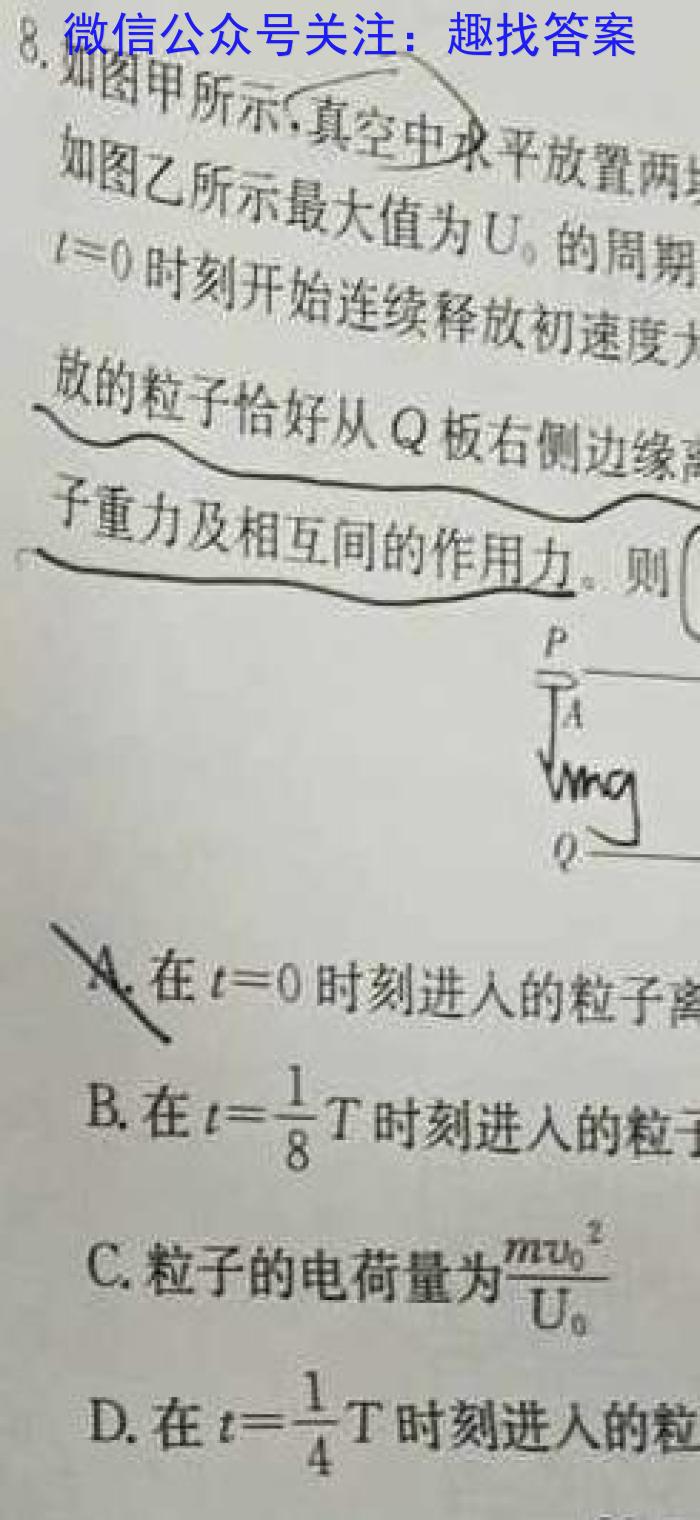 微信公众号关注：趣找答案
8. 如图甲所示,真空中水平放置两
如图乙所示最大值为U₀的周期
t=0时刻开始连续释放初速度大
放的粒子恰好从Q板右侧边缘离
子重力及相互间的作用力。则
P
A
mg
Q
A. 在t=0时刻进入的粒子离
B. 在t=\frac{1}{8}T时刻进入的粒子
C. 粒子的电荷量为\frac{mv₀²}{U₀}
D. 在t=\frac{1}{4}T时刻进入的粒